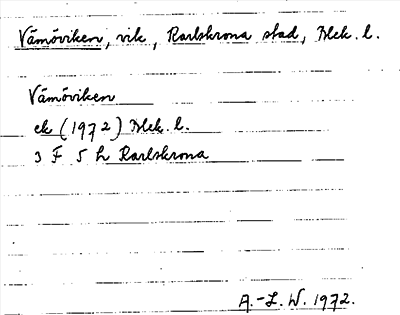 Vämöviken, vik, Karlskrona stad, Blek. l.
Vämöviken
ek (1972) Blek. l.
3 F 5 h Karlskrona
A.-L. W. 1972.